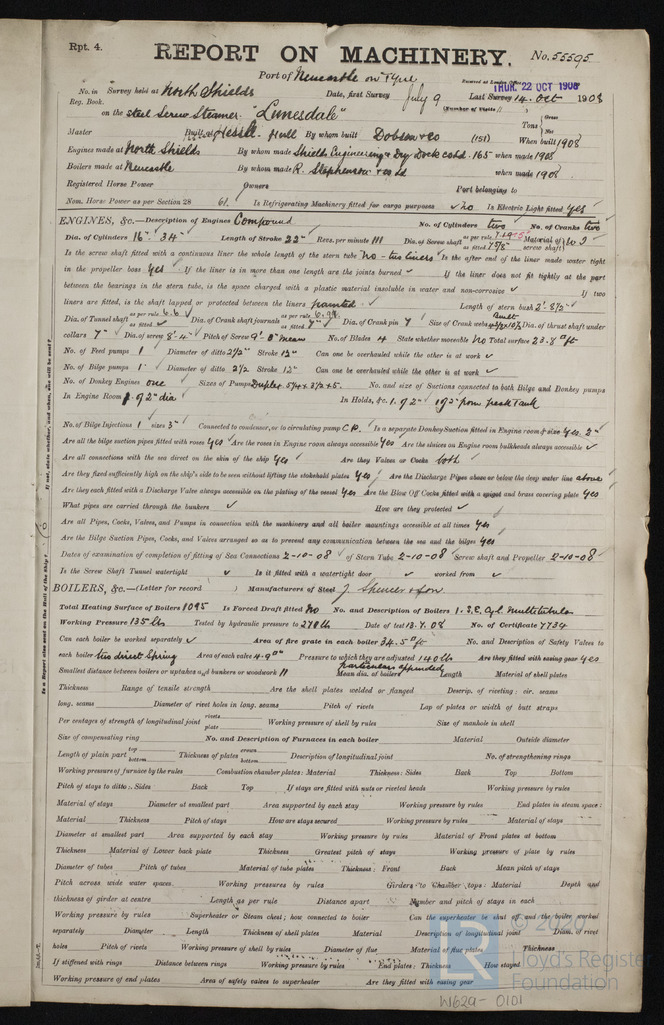 Rpt. 4.
REPORT ON MACHINERY.
No. 55595
Port of Newcastle on Tyne
Received at London Office THUR. 22 OCT 1908
No. in Survey held at North Shields Date, first Survey July 9 Last Survey 14. Oct 1908
Reg. Book.
(Number of Visits)
on the steel Screw Steamer "Lunesdale" Tons Gross Net
Master Built at Hessle. Hull By whom built Dobson & Co (151) When built 1908
Engines made at North Shields By whom made Shields Engineering & Dry Dock Co Ld. 165 when made 1908
Boilers made at Newcastle By whom made R. Stephenson & Co Ld when made 1908
Registered Horse Power Owners Port belonging to
Nom. Horse Power as per Section 28 61. Is Refrigerating Machinery fitted for cargo purposes No Is Electric Light fitted yes
ENGINES, &c.—Description of Engines Compound No. of Cylinders two No. of Cranks two
Dia. of Cylinders 16" 34" Length of Stroke 22" Revs. per minute 111 Dia. of Screw shaft as per rule as fitted 7 5/8" Material of screw shaft
Is the screw shaft fitted with a continuous liner the whole length of the stern tube No - two liners Is the after end of the liner made water tight
in the propeller boss yes If the liner is in more than one length are the joints burned If the liner does not fit tightly at the part
between the bearings in the stern tube, is the space charged with a plastic material insoluble in water and non-corrosive If two
liners are fitted, is the shaft lapped or protected between the liners painted Length of stern bush 2'. 8 1/2"
Dia. of Tunnel shaft as per rule 6.6 as fitted Dia. of Crank shaft journals as per rule 6.98 as fitted 7" Dia. of Crank pin 7 Size of Crank webs Built Dia. of thrust shaft under
collars 7" Dia. of screw 8'. 4" Pitch of Screw 9'. 0" mean No. of Blades 4 State whether moveable No Total surface 23.8 ft
No. of Feed pumps 1 Diameter of ditto 2 1/2" Stroke 12" Can one be overhauled while the other is at work
No. of Bilge pumps 1 Diameter of ditto 2 1/2 Stroke 12" Can one be overhauled while the other is at work
No. of Donkey Engines one Sizes of Pumps Duplex 5 1/4 x 3 1/2 x 5. No. and size of Suctions connected to both Bilge and Donkey pumps
In Engine Room 1. @ 2" dia In Holds, &c. 1. @ 2" 1 @ 2" from peak Tank
No. of Bilge Injections 1 sizes 3" Connected to condenser, or to circulating pump C.P. Is a separate Donkey Suction fitted in Engine room & size yes. 2"
Are all the bilge suction pipes fitted with roses yes Are the roses in Engine room always accessible yes Are the sluices on Engine room bulkheads always accessible
Are all connections with the sea direct on the skin of the ship yes Are they Valves or Cocks both
Are they fixed sufficiently high on the ship's side to be seen without lifting the stokehold plates yes Are the Discharge Pipes above or below the deep water line above
Are they each fitted with a Discharge Valve always accessible on the plating of the vessel yes Are the Blow Off Cocks fitted with a spigot and brass covering plate yes
What pipes are carried through the bunkers How are they protected
Are all Pipes, Cocks, Valves, and Pumps in connection with the machinery and all boiler mountings accessible at all times yes
Are the Bilge Suction Pipes, Cocks, and Valves arranged so as to prevent any communication between the sea and the bilges yes
Dates of examination of completion of fitting of Sea Connections 2-10-08 of Stern Tube 2-10-08 Screw shaft and Propeller 2-10-08
Is the Screw Shaft Tunnel watertight Is it fitted with a watertight door worked from
BOILERS, &c.—(Letter for record ) Manufacturers of Steel J. Spencer & Son
Total Heating Surface of Boilers 1095 Is Forced Draft fitted No No. and Description of Boilers 1. S.E. Cyl. Multitubular
Working Pressure 135 lbs Tested by hydraulic pressure to 270 lbs Date of test 13.7.08 No. of Certificate 7734
Can each boiler be worked separately Area of fire grate in each boiler 34.5 ft No. and Description of Safety Valves to
each boiler two direct Spring Area of each valve 4.9 Pressure to which they are adjusted 140 lbs Are they fitted with easing gear yes
Smallest distance between boilers or uptakes and bunkers or woodwork 11 Mean dia. of boilers Length Material of shell plates
particulars appended
Thickness Range of tensile strength Are the shell plates welded or flanged Descrip. of riveting: cir. seams
long. seams Diameter of rivet holes in long. seams Pitch of rivets Lap of plates or width of butt straps
Per centages of strength of longitudinal joint rivets plate Working pressure of shell by rules Size of manhole in shell
Size of compensating ring No. and Description of Furnaces in each boiler Material Outside diameter
Length of plain part top bottom Thickness of plates crown bottom Description of longitudinal joint No. of strengthening rings
Working pressure of furnace by the rules Combustion chamber plates: Material Thickness: Sides Back Top Bottom
Pitch of stays to ditto: Sides Back Top If stays are fitted with nuts or riveted heads Working pressure by rules
Material of stays Diameter at smallest part Area supported by each stay Working pressure by rules End plates in steam space:
Material Thickness Pitch of stays How are stays secured Working pressure by rules Material of stays
Diameter at smallest part Area supported by each stay Working pressure by rules Material of Front plates at bottom
Thickness Material of Lower back plate Thickness Greatest pitch of stays Working pressure of plate by rules
Diameter of tubes Pitch of tubes Material of tube plates Thickness: Front Back Mean pitch of stays
Pitch across wide water spaces Working pressures by rules Girders to Chamber tops: Material Depth and
thickness of girder at centre Length as per rule Distance apart Number and pitch of stays in each
Working pressure by rules Superheater or Steam chest; how connected to boiler Can the superheater be shut off and the boiler worked
separately Diameter Length Thickness of shell plates Material Description of longitudinal joint Diam. of rivet
holes Pitch of rivets Working pressure of shell by rules Diameter of flue Material of flue plates Thickness
If stiffened with rings Distance between rings Working pressure by rules End plates: Thickness How stayed
Working pressure of end plates Area of safety valves to superheater Are they fitted with easing gear
Is a Report also sent on the Hull of the Ship?
If not, state whether, and when, one will be sent?
© 2020
LR
Lloyd's Register
Foundation
W629-0101